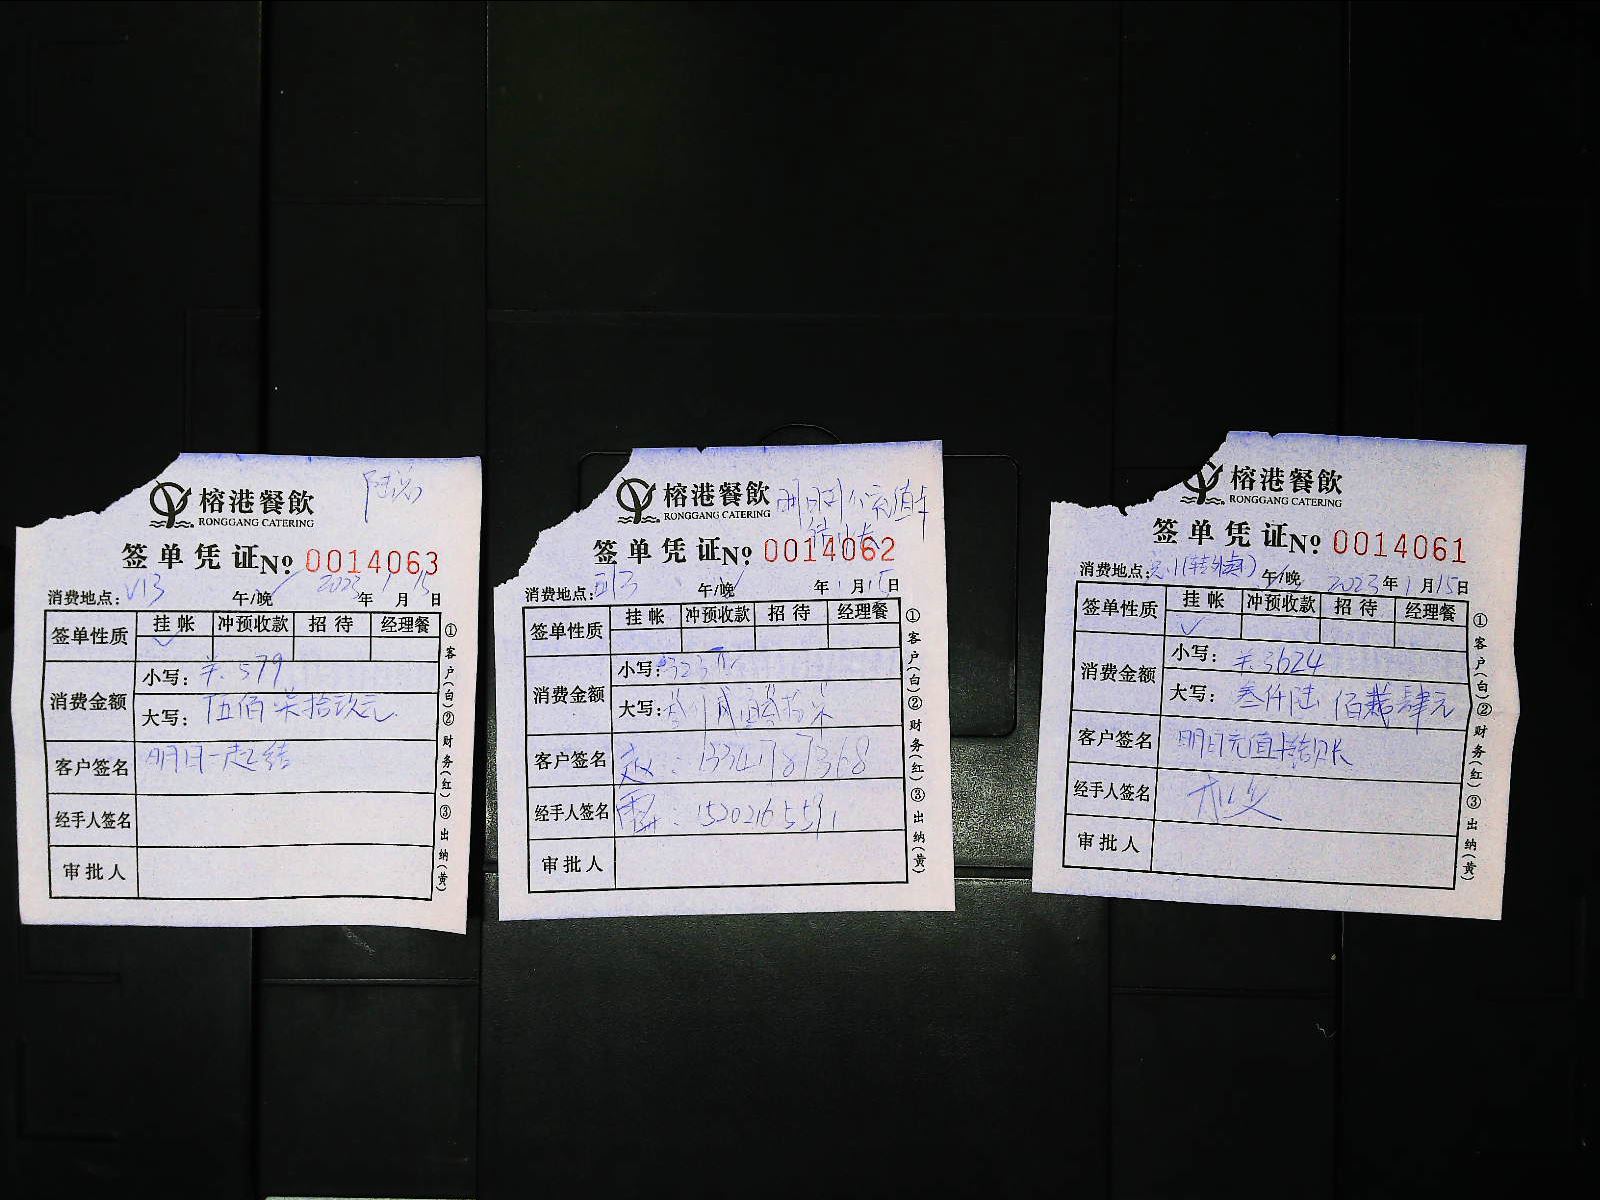 榕港餐飲
RONGGANG CATERING
签单凭证 No 0014063
消费地点: V13 午/晚 2023年1月15日
签单性质 挂帐 冲预收款 招待 经理餐
消费金额
小写: ¥.579
大写: 伍佰柒拾玖元
客户签名 明日一起结
经手人签名
审批人
①客户(白)②财务(红)③出纳(黄)
榕港餐飲
RONGGANG CATERING
签单凭证 No 0014062
消费地点: 午/晚 年1月15日
签单性质 挂帐 冲预收款 招待 经理餐
消费金额
小写:
大写:
客户签名
经手人签名 : 15202165591
审批人
①客户(白)②财务(红)③出纳(黄)
榕港餐飲
RONGGANG CATERING
签单凭证 No 0014061
消费地点: 午/晚 2023年1月15日
签单性质 挂帐 冲预收款 招待 经理餐
消费金额
小写: ¥.3624
大写: 叁仟陆佰贰肆元
客户签名 明日充值卡结账
经手人签名
审批人
①客户(白)②财务(红)③出纳(黄)